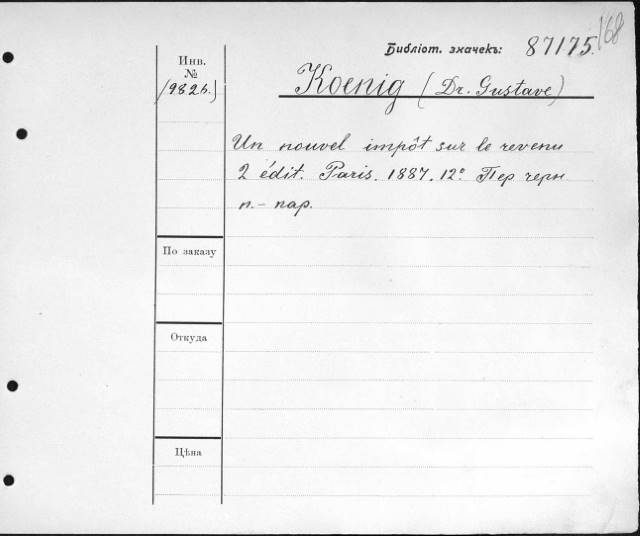 Библіот. значекъ: 87175. 168
Инв.
№
(982b.)
Koenig (Dr. Gustave)
Un nouvel impôt sur le revenu
2 édit. Paris. 1887. 12º Пер черн
п. – пар.
По заказу
Откуда
Цѣна